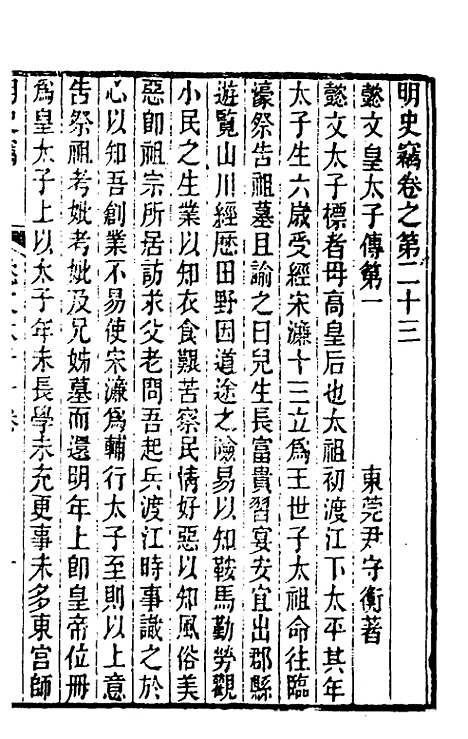 明史竊卷之第二十三
懿文皇太子傳第一　東莞尹守衡著
懿文太子標者母高皇后也太祖初渡江下太平其年
太子生六歲受經宋濂十三立爲王世子太祖命往臨
濠祭告祖墓且諭之曰兒生長富貴習宴安宜出郡縣
遊覽山川經歷田野因道途之險易以知鞍馬勤勞觀
小民之生業以知衣食艱苦察民情好惡以知風俗美
惡卽祖宗所居訪求父老問吾起兵渡江時事識之於
心以知吾創業不易使宋濂爲輔行太子至則以上意
告祭祖考妣考妣及兄姊墓而還明年上卽皇帝位冊
爲皇太子上以太子年未長學未充更事未多東宮師